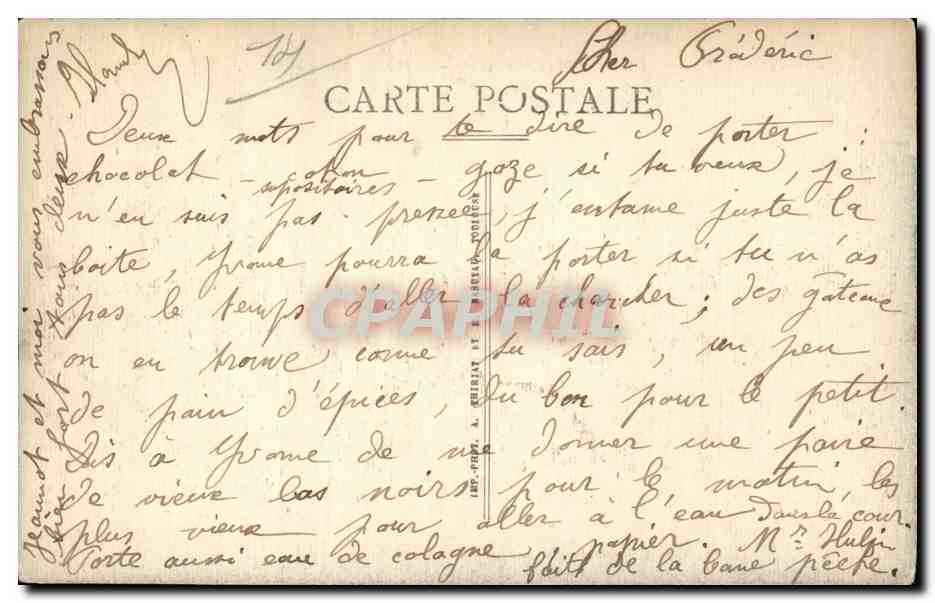 14
Cher Frédéric
CARTE POSTALE
Deux mots pour te dire de porter :
chocolat – coton – goze si tu veux, je
supositoires
n'en suis pas pressée, j'entame juste la
boite, Yvonne pourra la porter si tu n'as
pas le temps d'aller la chercher ; des gateaux
on en trouve comme tu sais, un peu
de pain d'épices, du bon pour le petit.
Dis à Yvonne de me donner une paire
de vieux bas noirs pour le matin, les
plus vieux pour aller à l'eau dans la cour.
Porte aussi eau de cologne, papier. Mr Hulin
fait de la bone pêche.
Jeannot et moi vous embrassons
bien fort tous deux.
IMP.-PHOT. A. THIRIAT ET TOULOUSE
CPAPHIL